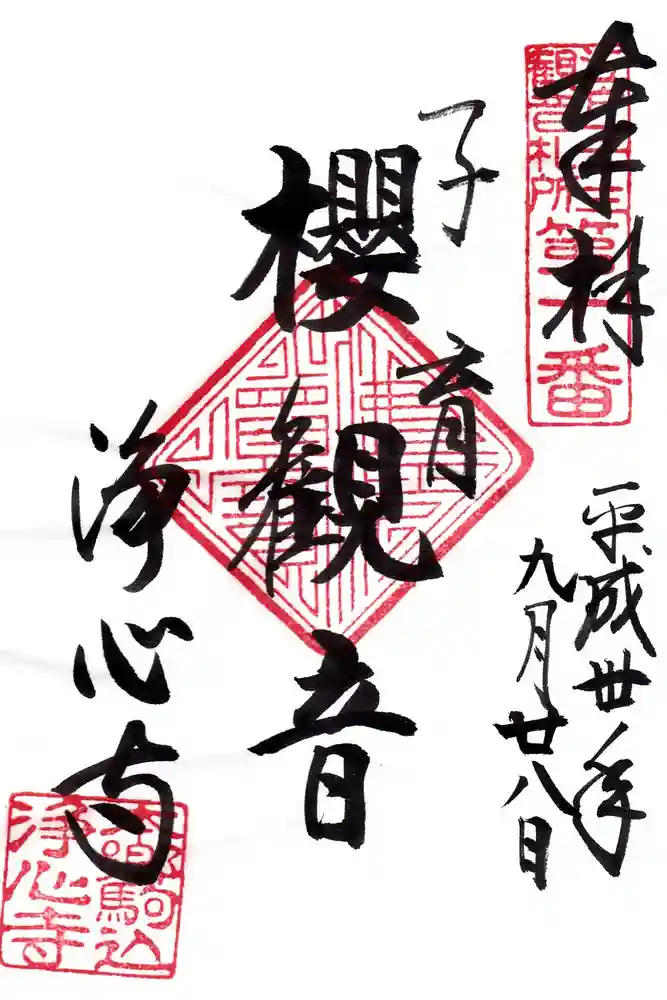 奉拝
平成卅年
九月廿八日
子育
櫻観音
浄心寺
観音札所
第
番
駒込
浄心寺